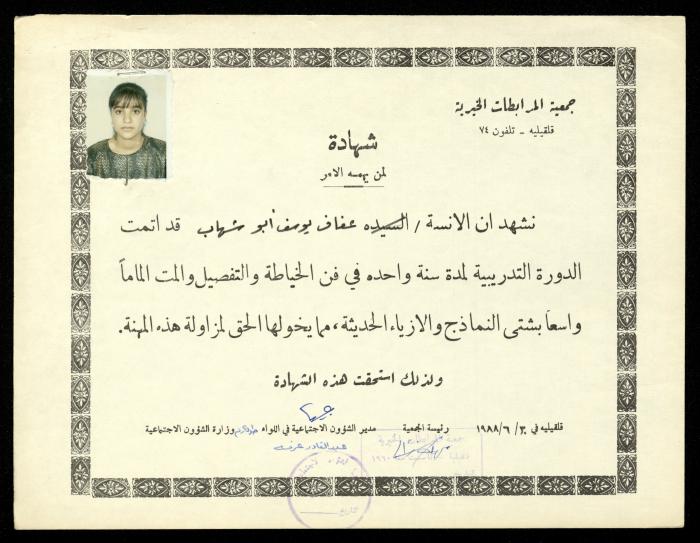 جمعية المرابطات الخيرية
قلقيليه - تلفون ٧٤
شهادة
لمن يهمه الامر
نشهد ان الانسة / السيده عفاف يوسف أبو شهاب قد اتمت
الدورة التدريبية لمدة سنة واحده في فن الخياطة والتفصيل والمت الماماً
واسعاً بشتى النماذج والازياء الحديثة، مما يخولها الحق لمزاولة هذه المهنة.
ولذلك استحقت هذه الشهادة
قلقيليه في ٣٠ / ٦ / ١٩٨٨ رئيسة الجمعية مدير الشؤون الاجتماعية في اللواء طولكرم وزارة الشؤون الاجتماعية
عبدالقادر
جمعية المرابطات الخيرية